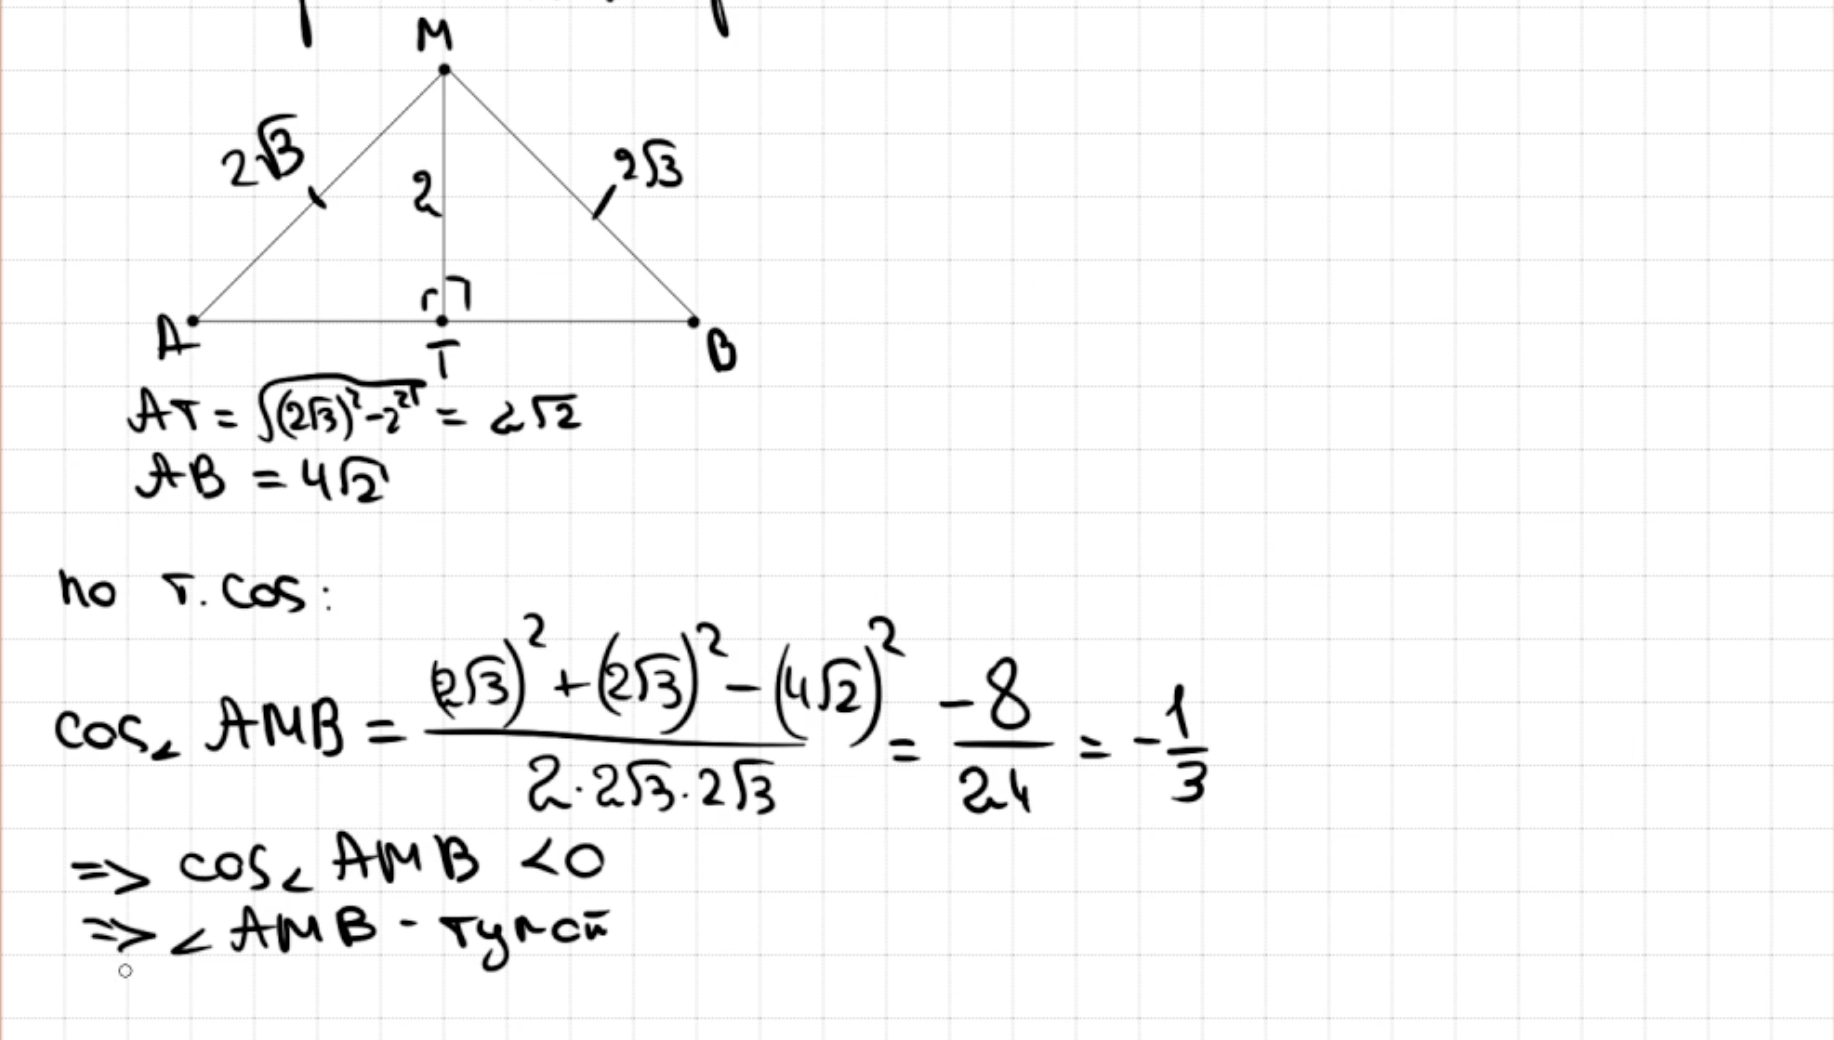 M
2√3
2
2√3
A
T
B
AT = √((2√3)² - 2²) = 2√2
AB = 4√2
по т. cos:
cos∠AMB = ((2√3)² + (2√3)² - (4√2)²) / (2·2√3·2√3) = -8/24 = -1/3
=> cos∠AMB < 0
=> ∠AMB - тупой